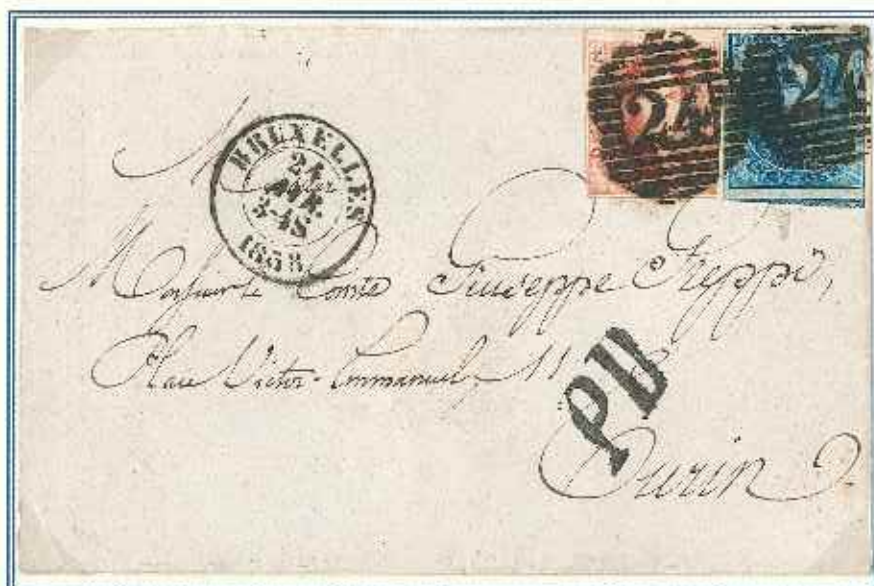 24
24
BRUXELLES
24
1863
Monsieur le Comte Giuseppe
Place Victor-Emmanuel, 11
PD
Turin